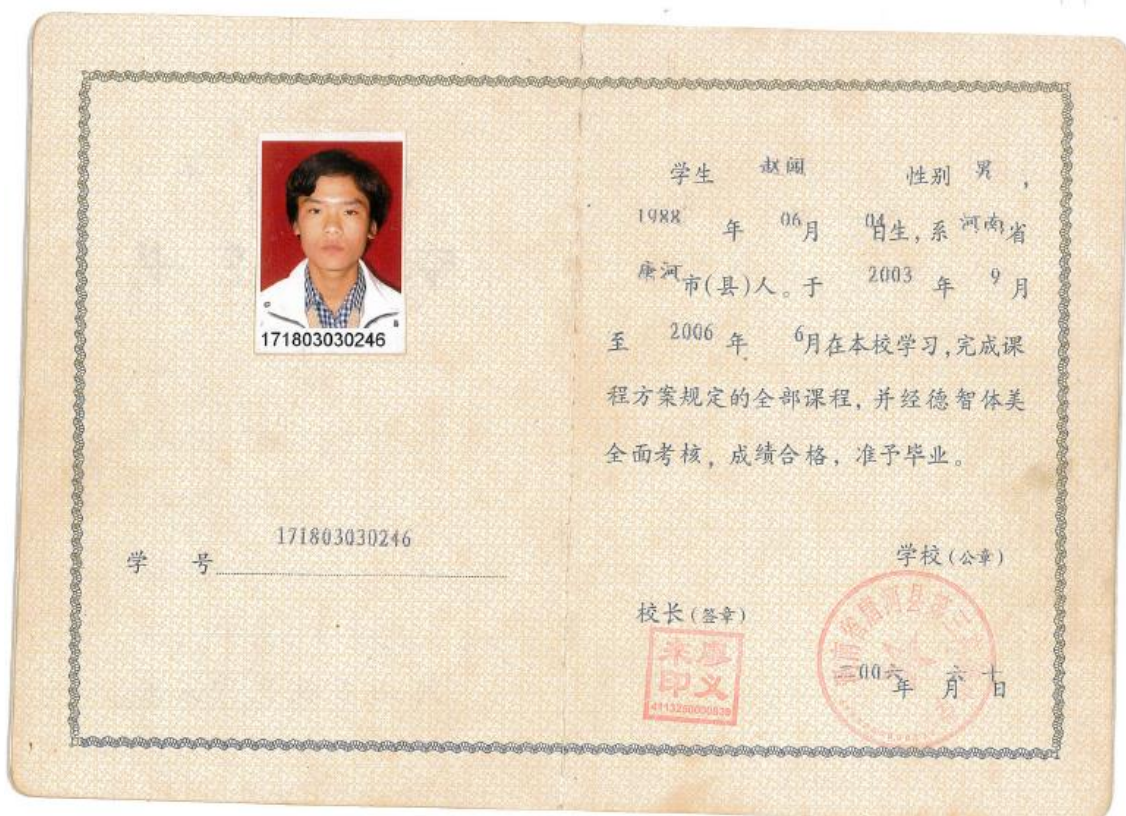 171803030246
学 号 171803030246
学生 赵闯 性别 男，
1988 年 06月 04日生，系 河南省
唐河市(县)人。于 2003 年 9 月
至 2006 年 6月在本校学习，完成课
程方案规定的全部课程，并经德智体美
全面考核，成绩合格，准予毕业。
学校(公章)
校长(签章)
廖义来印
二00六年 六月 十日
河南省唐河县第三